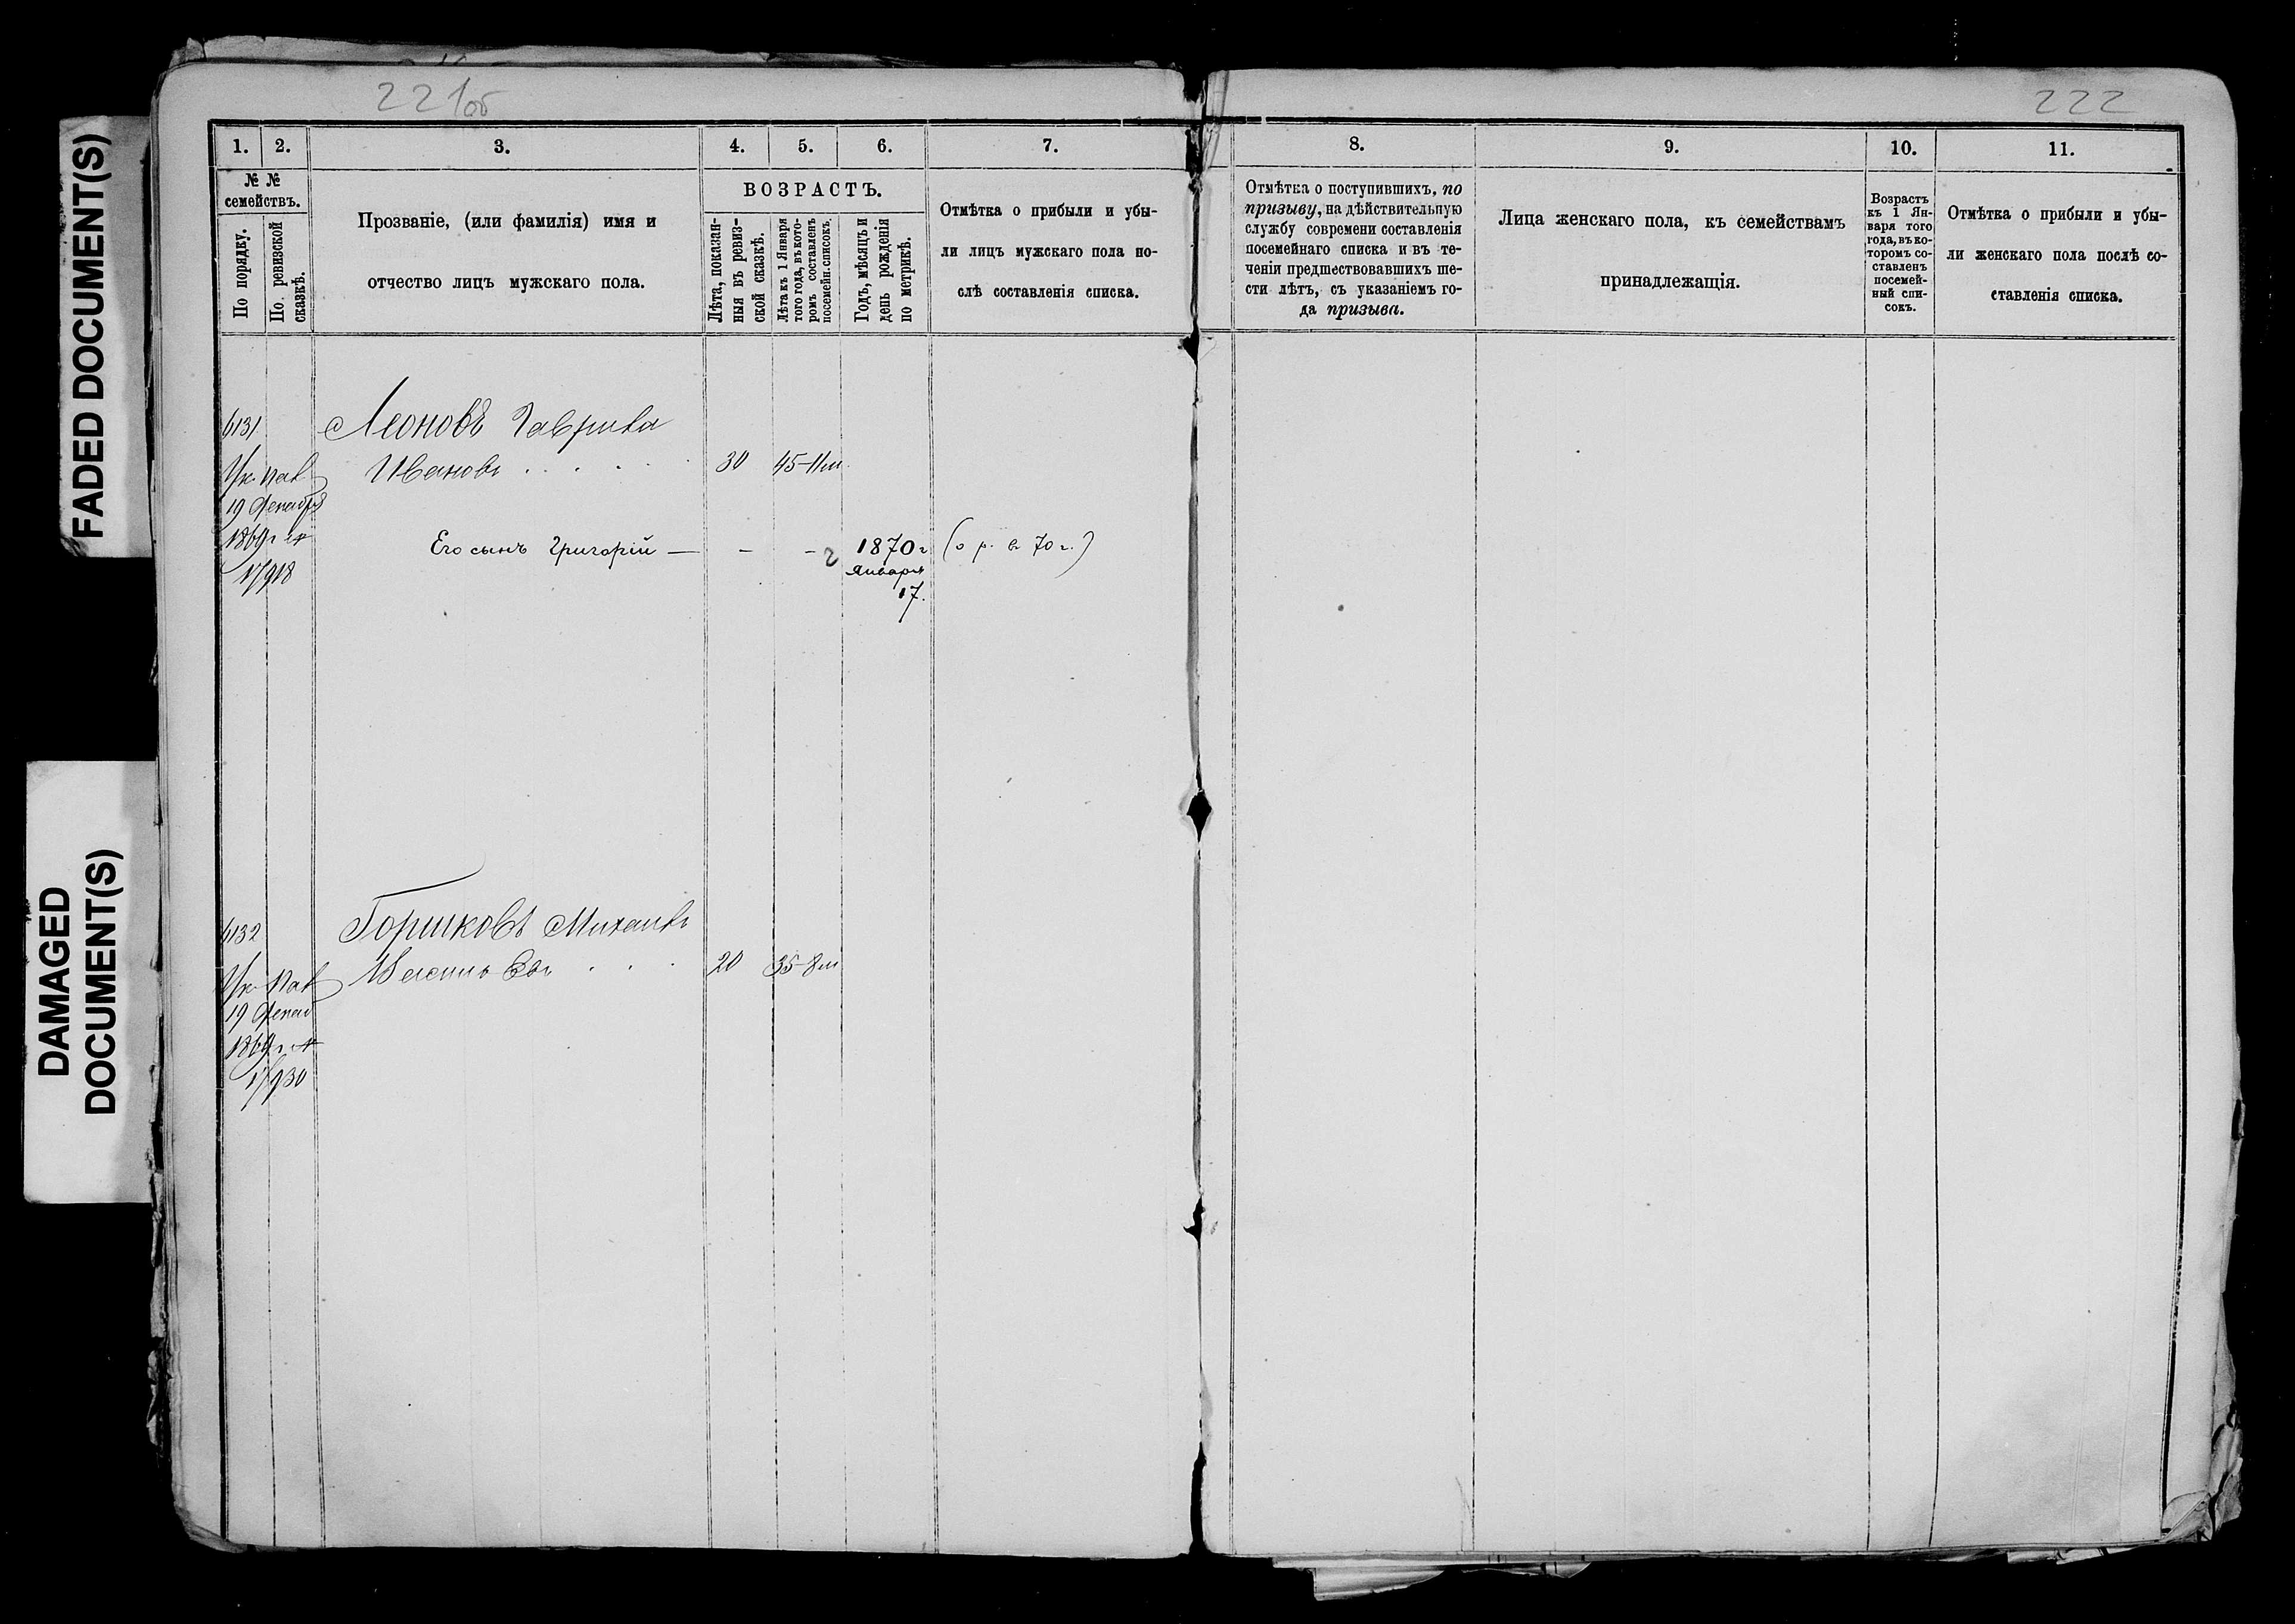 221об
222
FADED DOCUMENT(S)
DAMAGED
DOCUMENT(S)
1. 2. 3. 4. 5. 6. 7. 8. 9. 10. 11.
№ №
семействъ.
По порядку.
По ревизской
сказкѣ.
Прозваніе, (или фамилія) имя и
отчество лицъ мужскаго пола.
ВОЗРАСТЪ.
Лѣта, показан-
ныя въ ревиз-
ской сказкѣ.
Лѣта къ 1 Января
того года, въ кото-
ромъ составленъ
посемейн. списокъ.
Годъ, мѣсяцъ и
день рожденія
по метрикѣ.
Отмѣтка о прибыли и убы-
ли лицъ мужскаго пола по-
слѣ составленія списка.
Отмѣтка о поступившихъ, по
призыву, на дѣйствительную
службу современи составленія
посемейнаго списка и въ те-
ченіи предшествовавшихъ ше-
сти лѣтъ, съ указаніемъ го-
да призыва.
Лица женскаго пола, къ семействамъ
принадлежащія.
Возрастъ
къ 1 Ян-
варя того
года, въ ко-
торомъ со-
ставленъ
посемей-
ный спи-
сокъ.
Отмѣтка о прибыли и убы-
ли женскаго пола послѣ со-
ставленія списка.
6131 Леоновъ Гаврила
Ук. Пал Ивановъ 30 45-11м.
19 Декабря
1869 г. №
17918
Его сынъ Григорій — - - 1870г (о р. въ 70 г.)
Января
17.
6132 Горшковъ Михаилъ
Ук. Пал Васильевъ 20 35-8м
19 Декаб
1869 г. №
17930